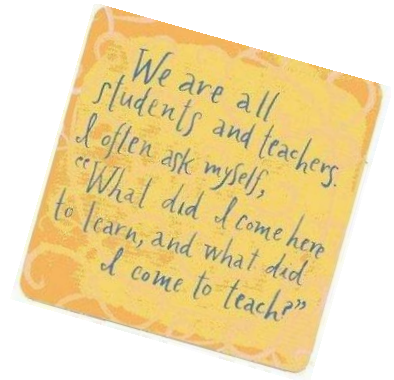 We are all
students and teachers.
I often ask myself,
“What did I come here
to learn, and what did
I come to teach?”